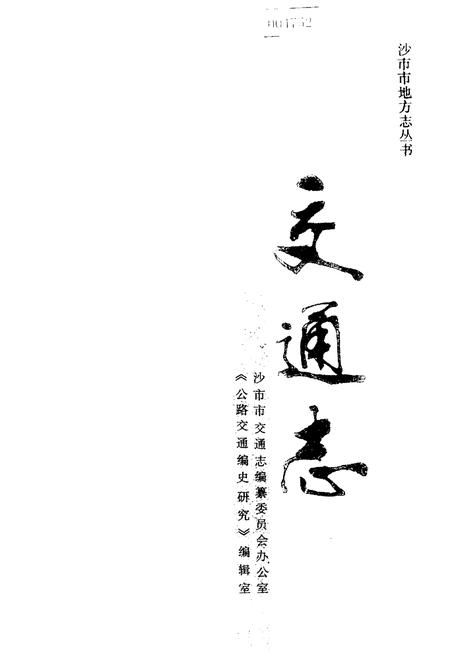 沙市市地方志丛书
交通志
沙市市交通志编纂委员会办公室
《公路交通编史研究》编辑室